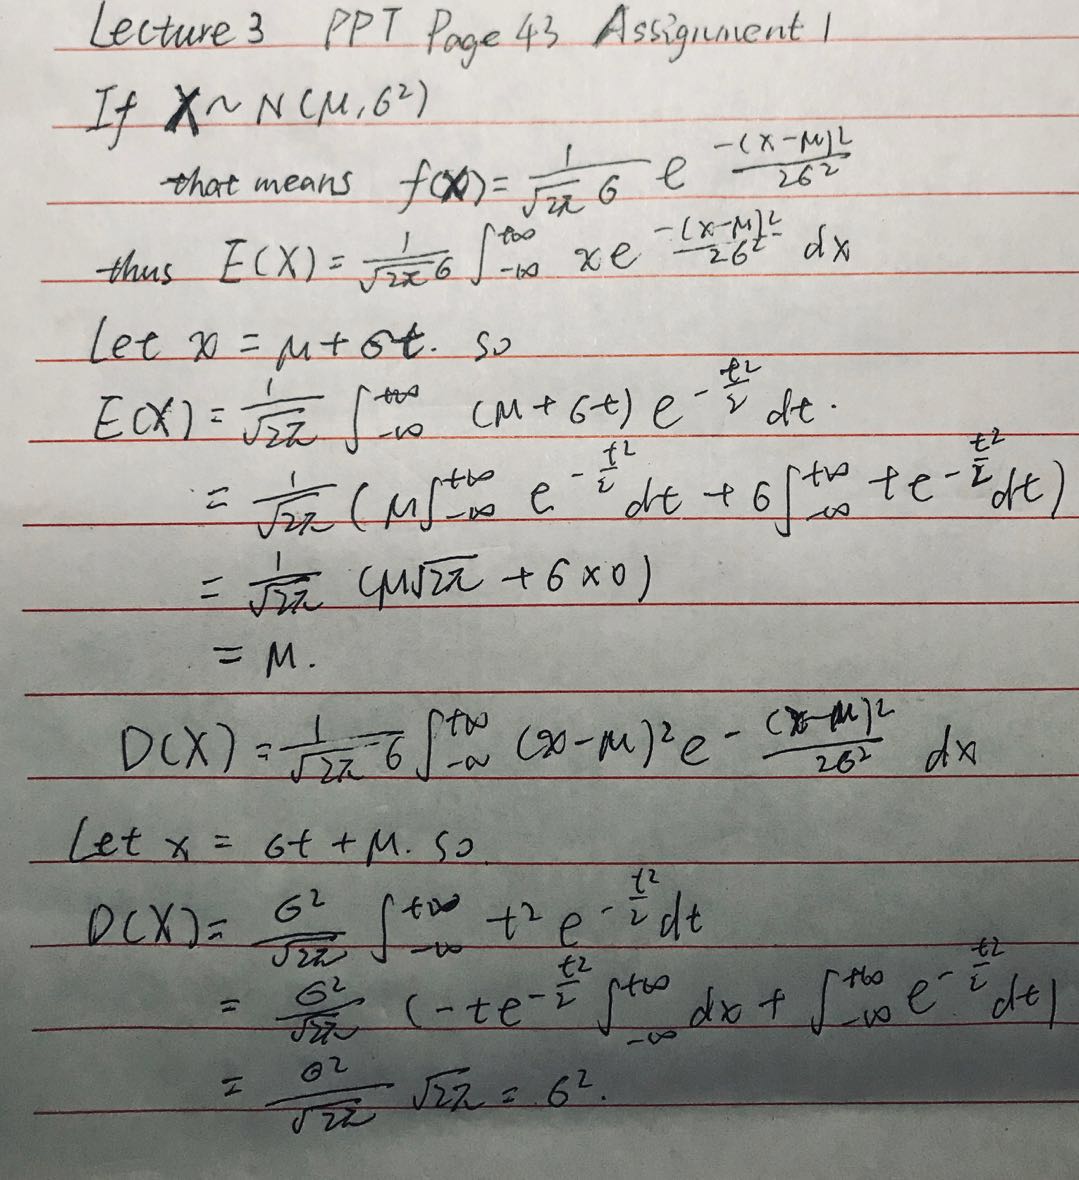 Lecture 3 PPT Page 43 Assignment 1
If X ~ N(μ, σ²)
that means f(x) = \frac{1}{\sqrt{2π} σ} e^{\frac{-(x-μ)^2}{2σ^2}}
thus E(X) = \frac{1}{\sqrt{2π} σ} ∫_{-∞}^{+∞} x e^{\frac{-(x-μ)^2}{2σ^2}} dx
Let x = μ + σt. so
E(X) = \frac{1}{\sqrt{2π}} ∫_{-∞}^{+∞} (μ + σt) e^{-\frac{t^2}{2}} dt.
= \frac{1}{\sqrt{2π}} (μ∫_{-∞}^{+∞} e^{-\frac{t^2}{2}} dt + σ∫_{-∞}^{+∞} t e^{-\frac{t^2}{2}} dt)
= \frac{1}{\sqrt{2π}} (μ\sqrt{2π} + σ × 0)
= μ.
D(X) = \frac{1}{\sqrt{2π} σ} ∫_{-∞}^{+∞} (x-μ)² e^{-\frac{(x-μ)^2}{2σ^2}} dx
Let x = σt + μ. so
D(X) = \frac{σ^2}{\sqrt{2π}} ∫_{-∞}^{+∞} t² e^{-\frac{t^2}{2}} dt
= \frac{σ^2}{\sqrt{2π}} (-t e^{-\frac{t^2}{2}} ∫_{-∞}^{+∞} dx + ∫_{-∞}^{+∞} e^{-\frac{t^2}{2}} dt)
= \frac{σ^2}{\sqrt{2π}} \sqrt{2π} = σ².